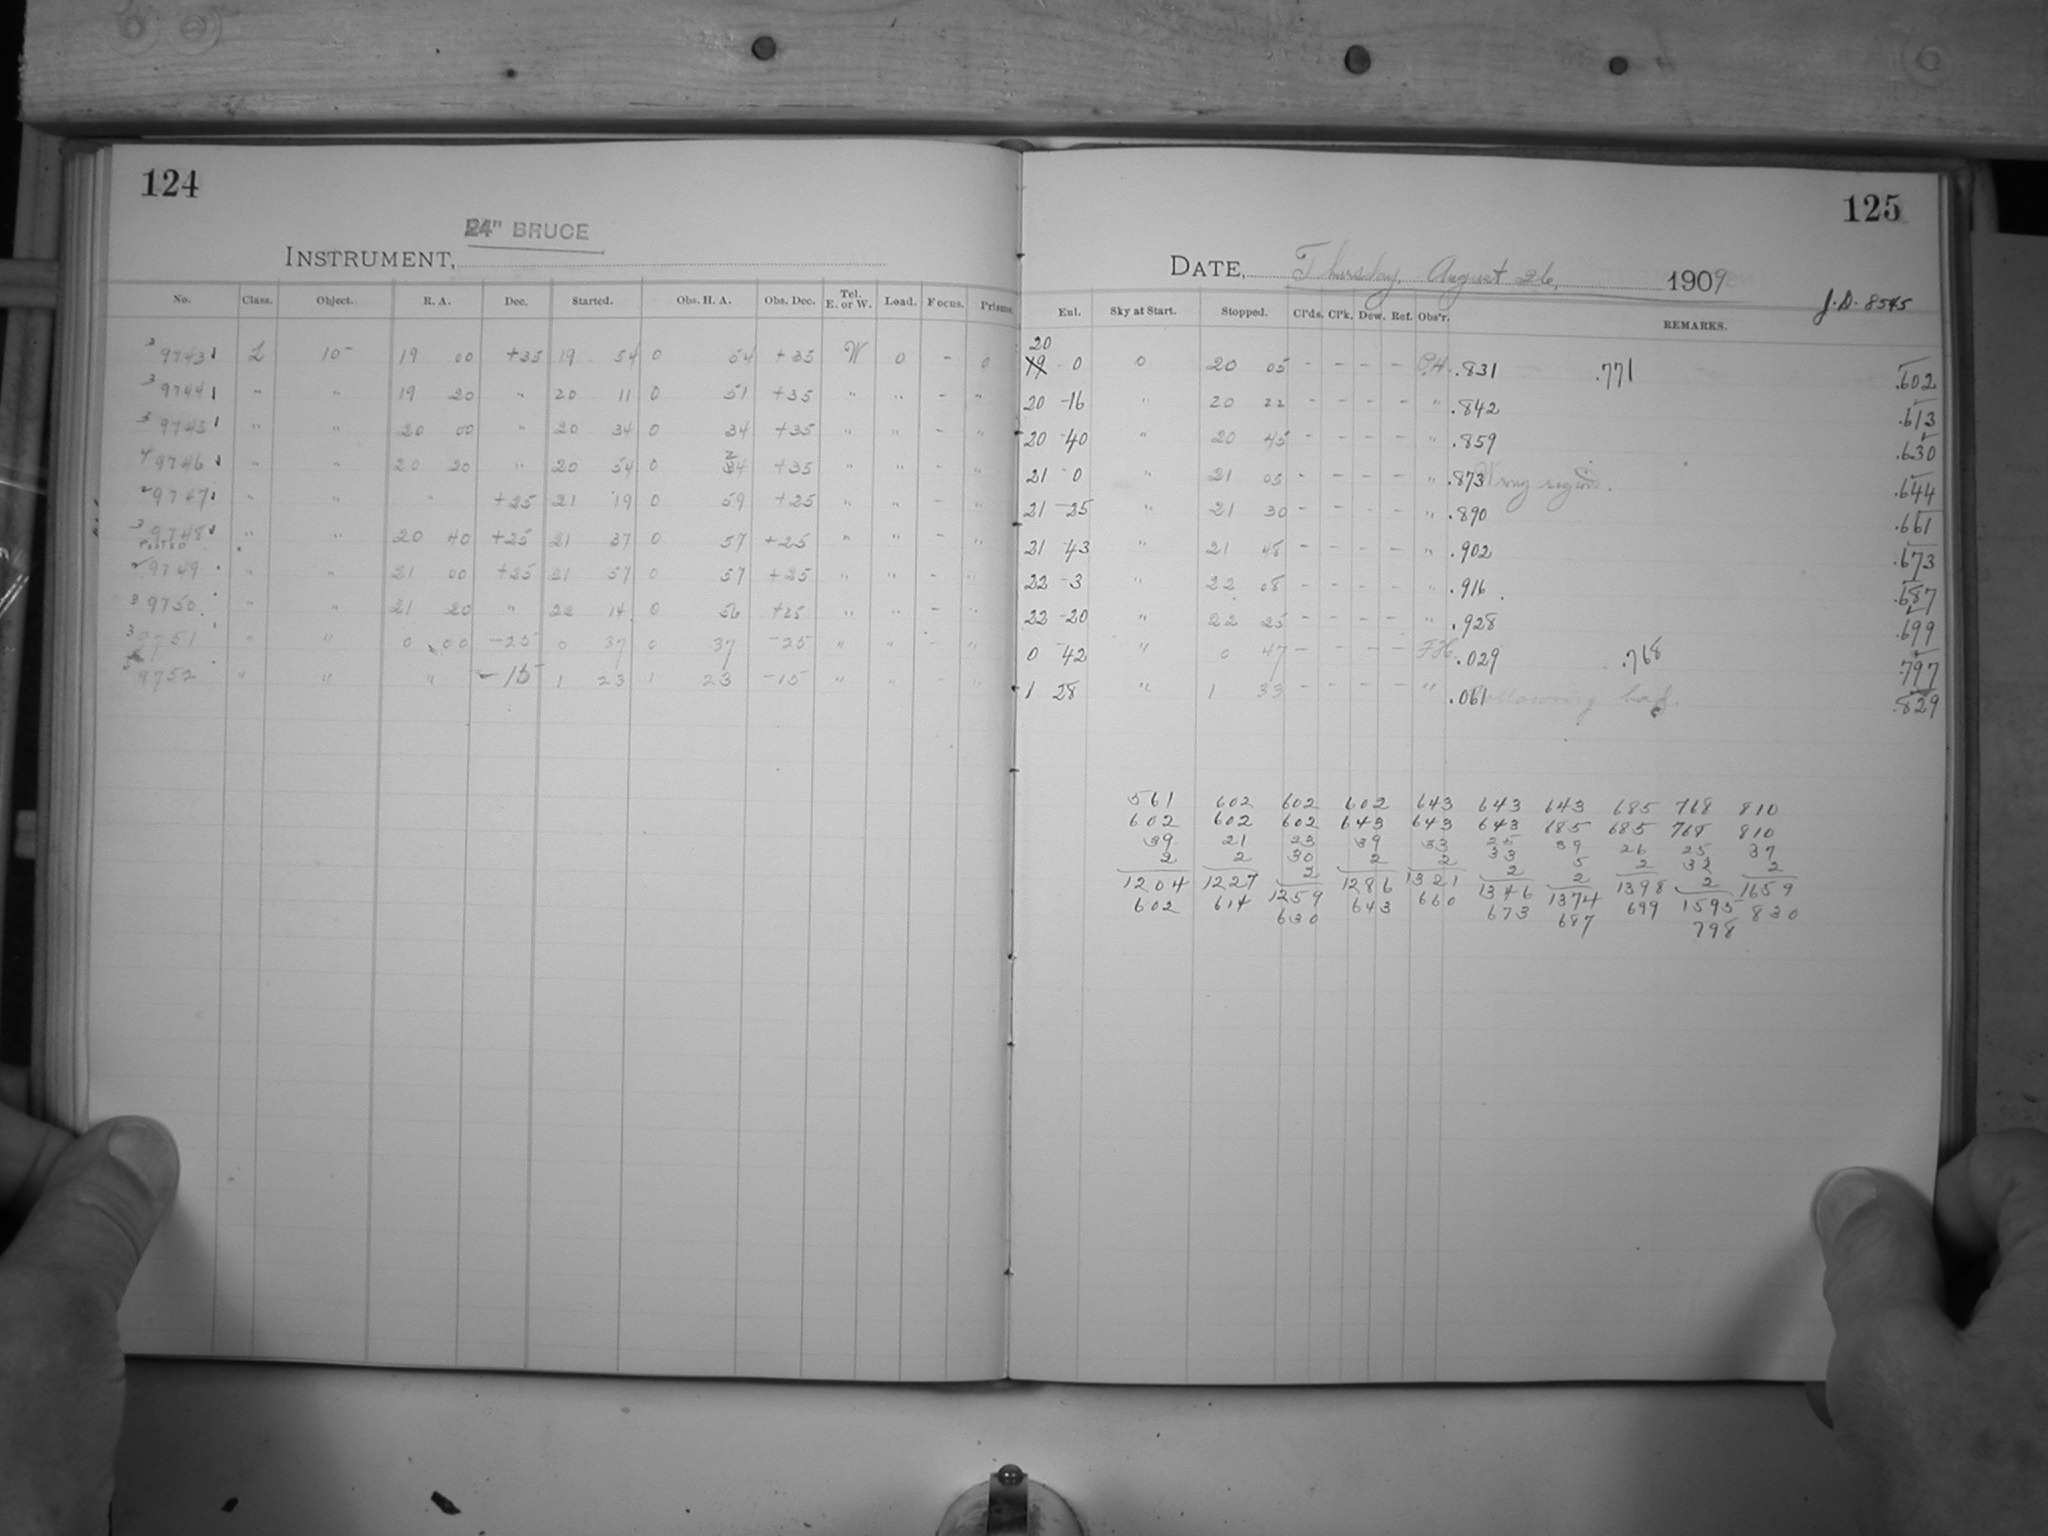 124
24" BRUCE
INSTRUMENT,
No. Class. Object. R. A. Dec. Started. Obs. H. A. Obs. Dec. Tel. E. or W. Load. Focus. Prisms.
3 9743 L 10 19 00 +35 19 54 0 54 +35 W 0 - 0
3 9744 " " 19 20 " 20 11 0 51 +35 " " - "
3 9745 " " 20 00 " 20 34 0 34 +35 " " - "
4 9746 " " 20 20 " 20 54 0 34 +35 " " - "
2 9747 " " " +25 21 19 0 59 +25 " " - "
3 9748 " " 20 40 +25 21 37 0 57 +25 " " - "
POSTED
9749 " " 21 00 +25 21 57 0 57 +25 " " - "
3 9750 " " 21 20 " 22 14 0 56 +25 " " - "
3 9751 " " 0 00 -25 0 37 0 37 -25 " " - "
9752 " " " -15 1 23 1 23 -15 " " - "
125
DATE, Thursday, August 26, 1909
J.D. 8545
Eul. Sky at Start. Stopped. Cl'ds. Cl'k. Dew. Ref. Obs'r. REMARKS.
20
19 0 0 20 05 - - - - .831 .771 .602
20 -16 " 20 22 - - - - " .842 .613
20 40 " 20 45 - - - - " .859 .630
21 0 " 21 05 - - - - " .873 Wrong region. .644
21 -25 " 21 30 - - - - " .890 .661
21 43 " 21 48 - - - - " .902 .673
22 -3 " 22 08 - - - - " .916 .687
22 -20 " 22 25 - - - - " .928 .699
0 42 " 0 47 - - - - .029 .768 .797
1 28 " 1 33 - - - - " .061 .829
561 602 602 602 643 643 643 685 768 810
602 602 602 643 643 643 685 685 768 810
39 21 23 39 33 25 39 26 25 37
2 2 30 2 2 33 5 2 32 2
1204 1227 2 1286 1321 2 2 1398 2 1659
602 614 1259 643 660 1346 1374 699 1595 830
630 673 687 798